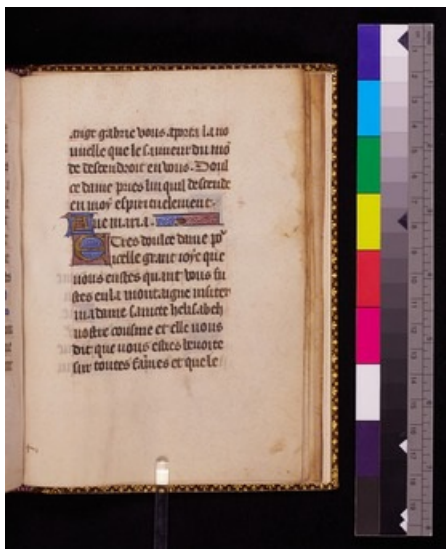 ange gabriel vous aporta la no
uuelle que le sauueur du mõ
de descendroit en vous. Doul
ce dame pries lui quil descende
en moy espirituelement.
Aue maria.
E Tres doulce dame po
ucelle grant ioye que
uous eustes quant vous fu
stes en la montaigne uisiter
ma dame saincte helisabeh
uostre cousine et elle uous
dit que uous esties benoite
sur toutes fames et que le